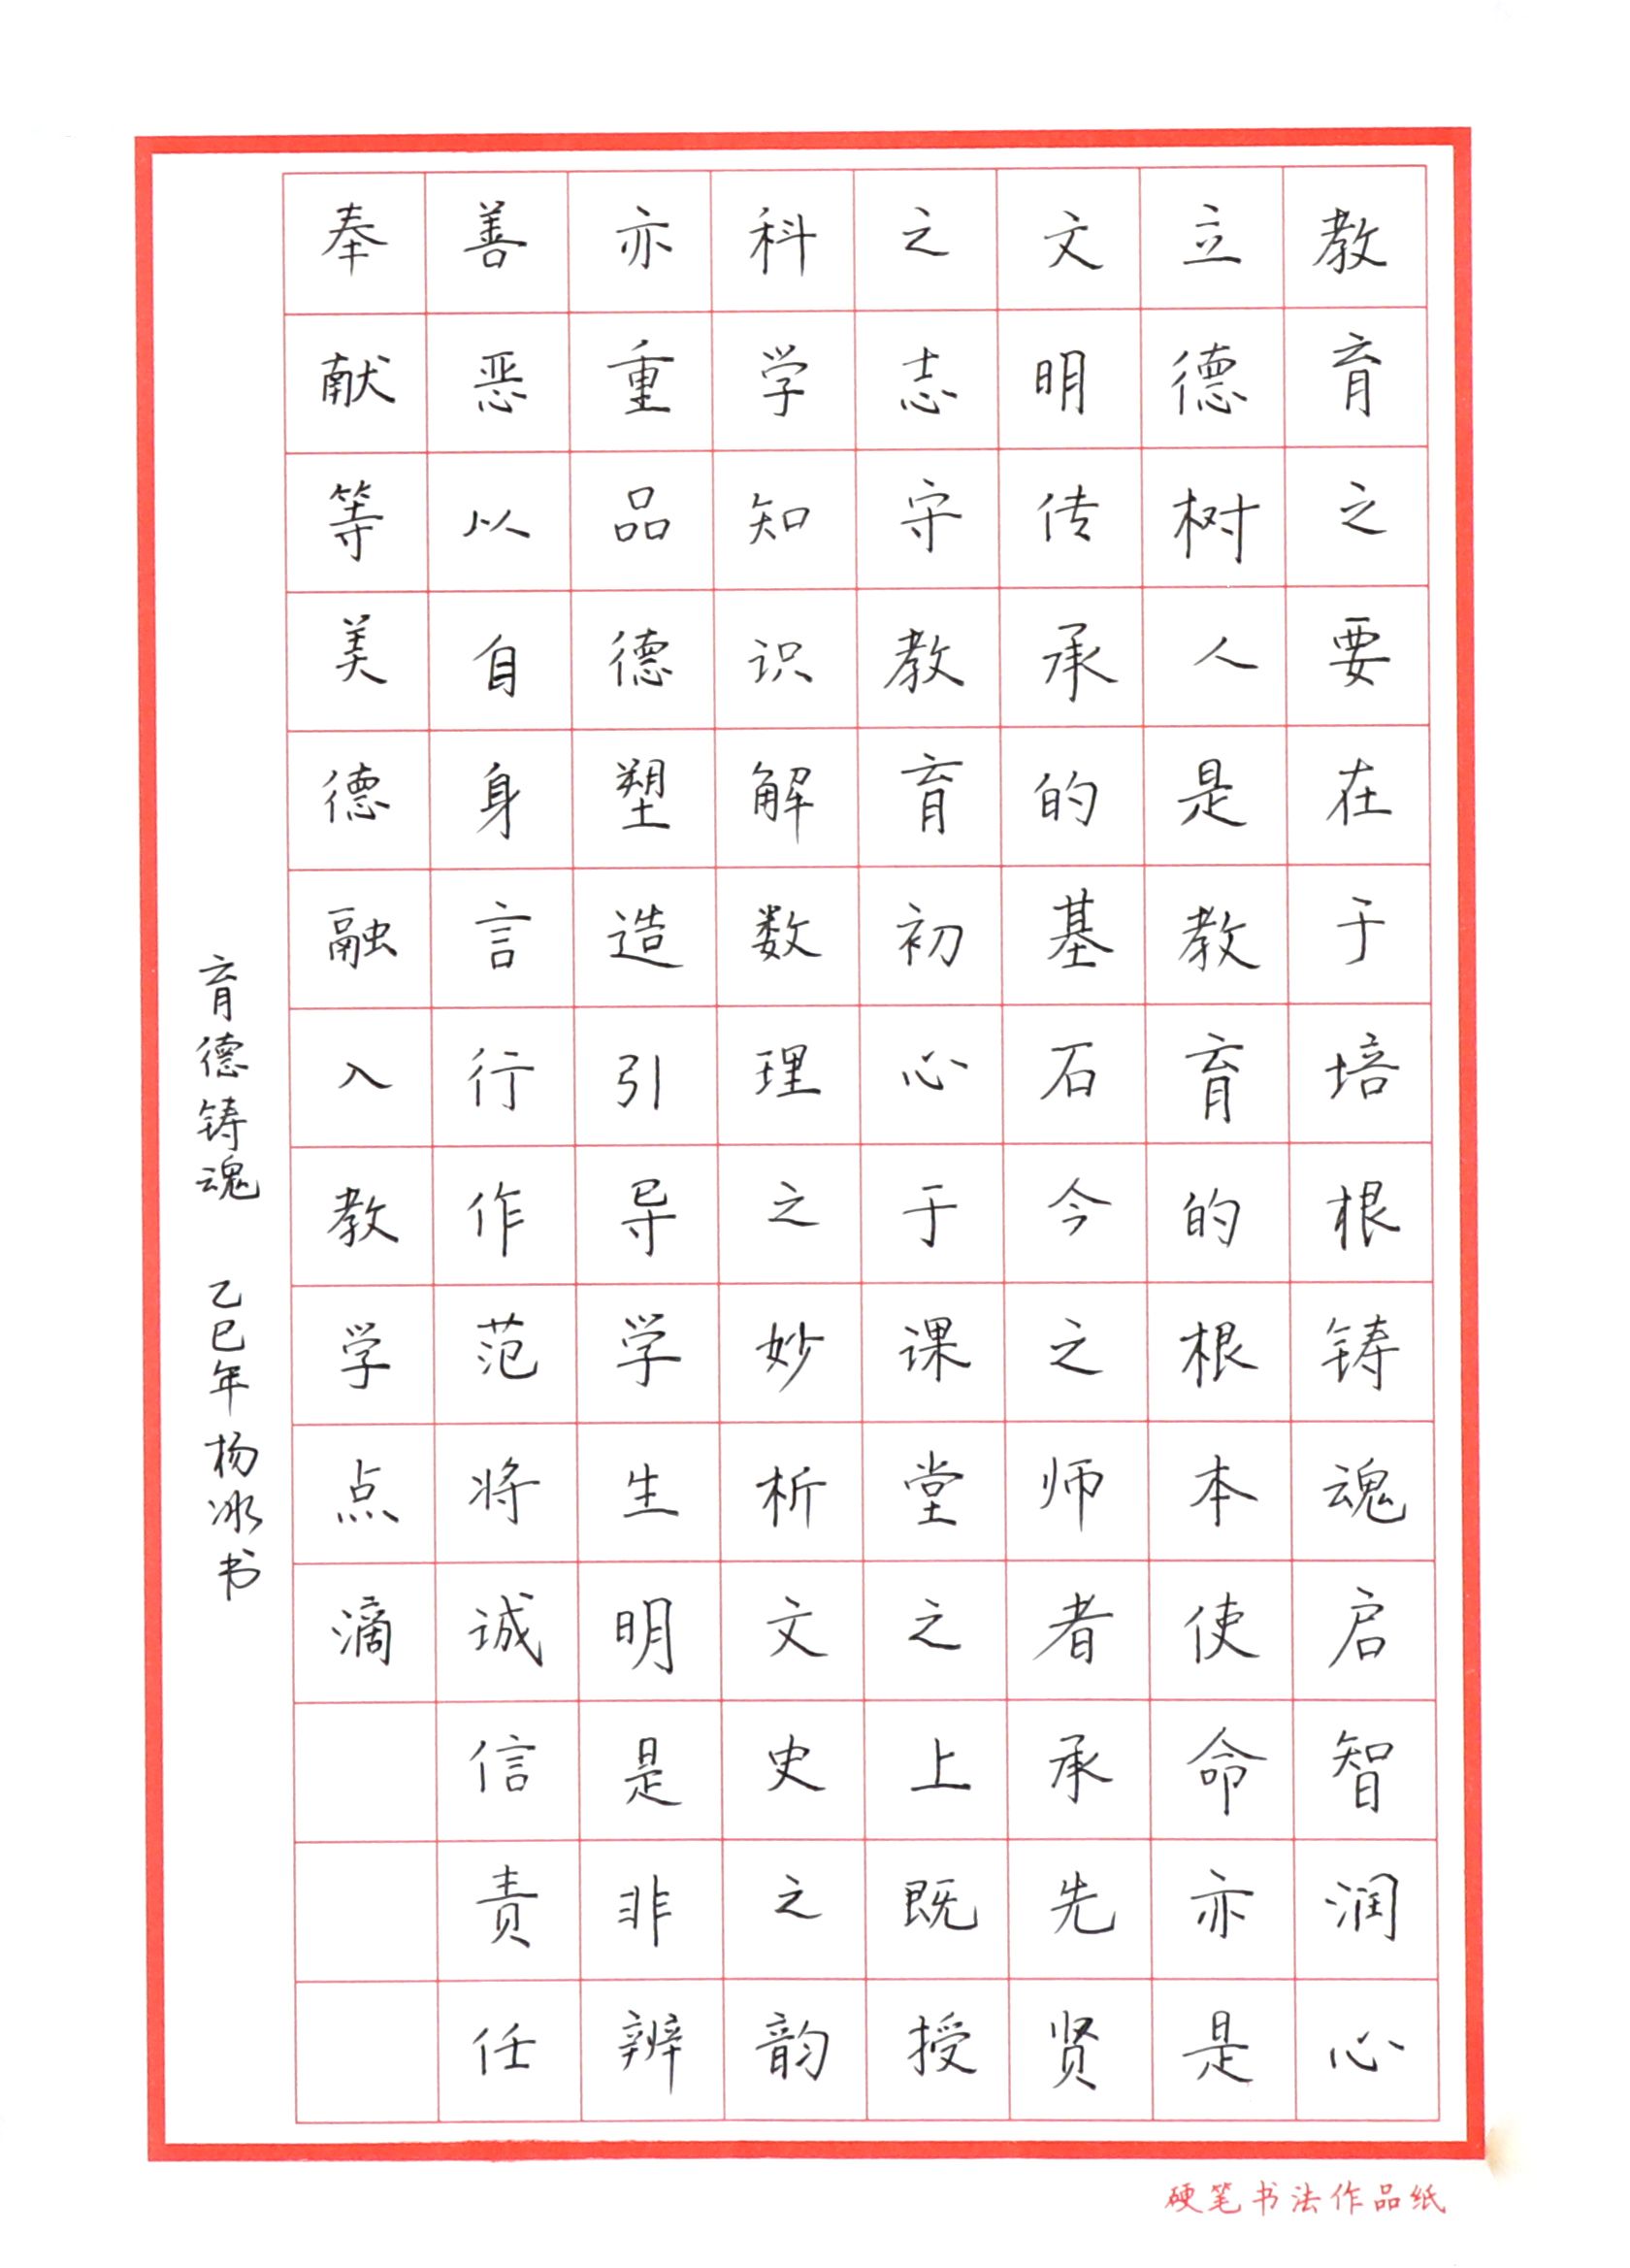 教育之要在于培根铸魂启智润心
立德树人是教育的根本使命亦是
文明传承的基石今之师者承先贤
之志守教育初心于课堂之上既授
科学知识解数理之妙析文史之韵
亦重品德塑造引导学生明是非辨
善恶以自身言行作范将诚信责任
奉献等美德融入教学点滴
育德铸魂 乙巳年杨冰书
硬笔书法作品纸